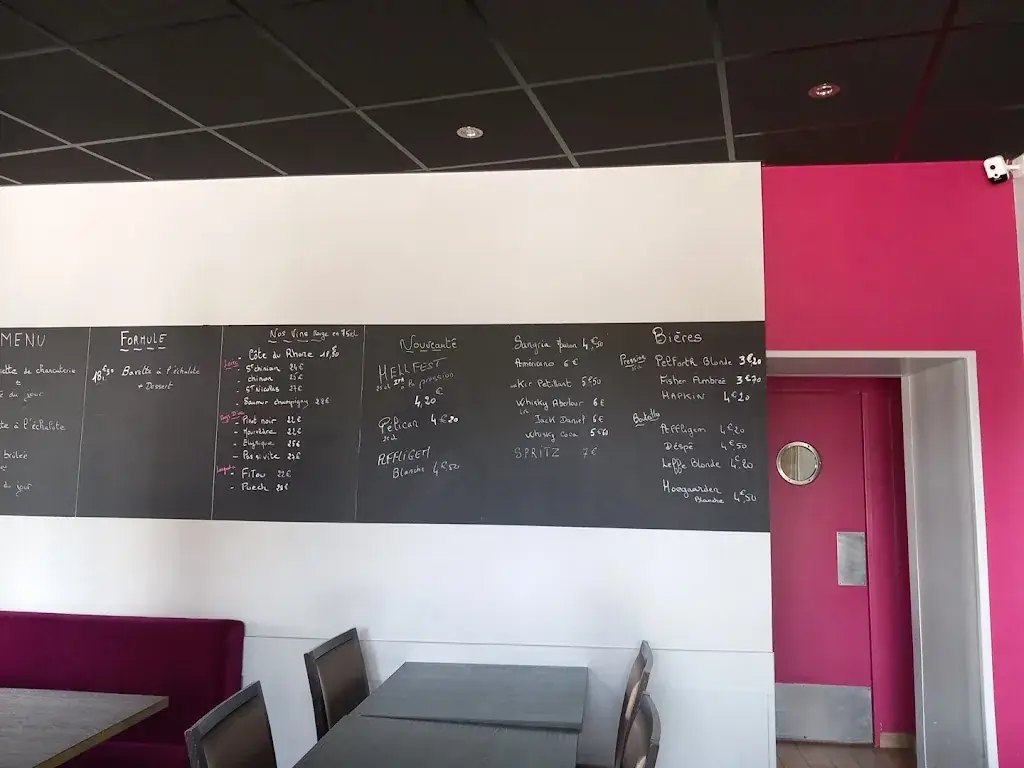 MENU
du jour
à l'échalote
brûlée
du jour
FORMULE
18,30 Bavette à l'échalote
+ Dessert
Nos Vins Rouge en 75cl
- Côte du Rhone
Loire
- St chinian
- chinon
- St Nicolas
- Saumur champigny
- Pinot noir 22€
-
- Elysique 25€
- Passivite
- Fitou 22€
- Puech
Nouveauté
HELLFEST
25cl IPA à la pression
4,20
Pelican 4€20
25cl
AFFLIGEM
Blanche 4€50
Sangria maison 4,50
Américano 6€
Kir Petillant 5€50
Whisky Aberlour 6€
Jack Daniel 6€
Whisky Coca 5€50
SPRITZ 7€
Bières
Pression
25cl
Pelforth Blonde 3€20
Fisher Ambreé 3€70
HAPKIN 4€20
Bouteille
Affligem 4€20
Déspé 4€50
Leffe Blonde 4€20
Hoegaarden
Blanche 4€50